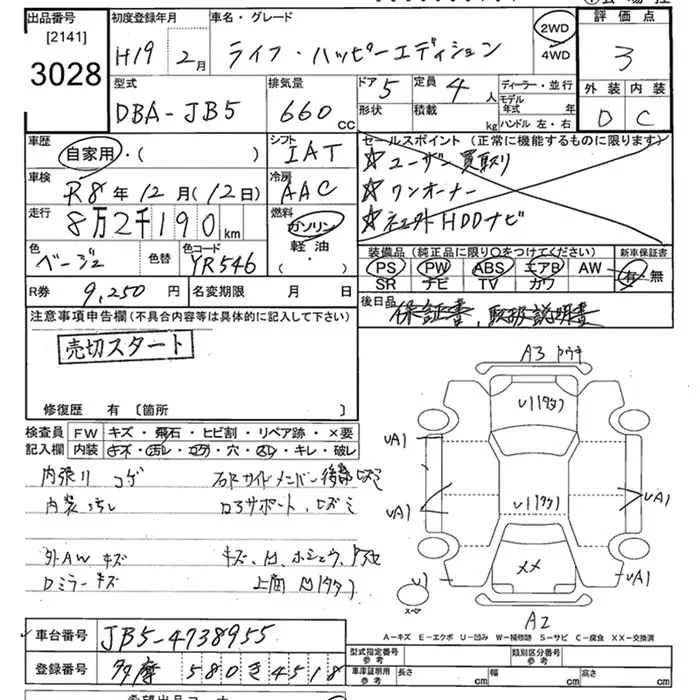 出品番号
[2141]
3028
初度登録年月
H19年2月
車名・グレード
ライフ・ハッピーエディション
2WD
4WD
評価点
3
型式
DBA-JB5
排気量
660cc
ドア 5
定員 4人
形状
積載 kg
ディーラー・並行
モデル年式 年
ハンドル 左・右
外装 内装
D C
車歴
自家用・( )
シフト
IAT
セールスポイント (正常に機能するものに限ります)
☆ユーザー買取り
☆ワンオーナー
☆社外HDDナビ
車検
R8年12月(12日)
冷房
AAC
走行
8万2千190km
燃料
ガソリン
軽油
・( )
色
ベージュ
色替
色コード
YR546
装備品 (純正品に限り○をつけてください)
新車保証書
PS PW ABS エアB AW 有・無
SR ナビ TV カワ
R券 9,250円
名変期限 月 日
後日品
保証書、取扱説明書
注意事項申告欄(不具合内容等は具体的に記入して下さい)
売切スタート
修復歴 有 [箇所 ]
検査員
記入欄
FW キズ・飛石・ヒビ割・リペア跡・×要
内装 キズ・汚れ・コゲ・穴・スレ・キレ・破レ
内張り コゲ
内装 汚レ
外AW キズ
Dミラーキズ
ロアサポート、ヒズミ
キズ、凹、
A3
UA1
UA1
UA1
UA1
××
スペア
A2
A-キズ E-エクボ U-凹み W-補修跡 S-サビ C-腐食 XX-交換済
車台番号 JB5-4738955
登録番号 多摩 580 き 4518
型式指定番号 参考
類別区分番号 参考
車庫証明用 参考
長さ cm
幅 cm
高さ cm